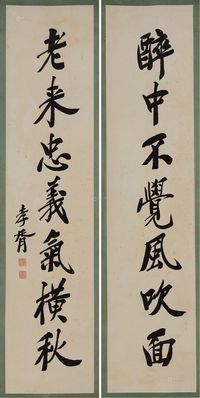 醉中不覺風吹面
老来忠義氣橫秋
孝胥